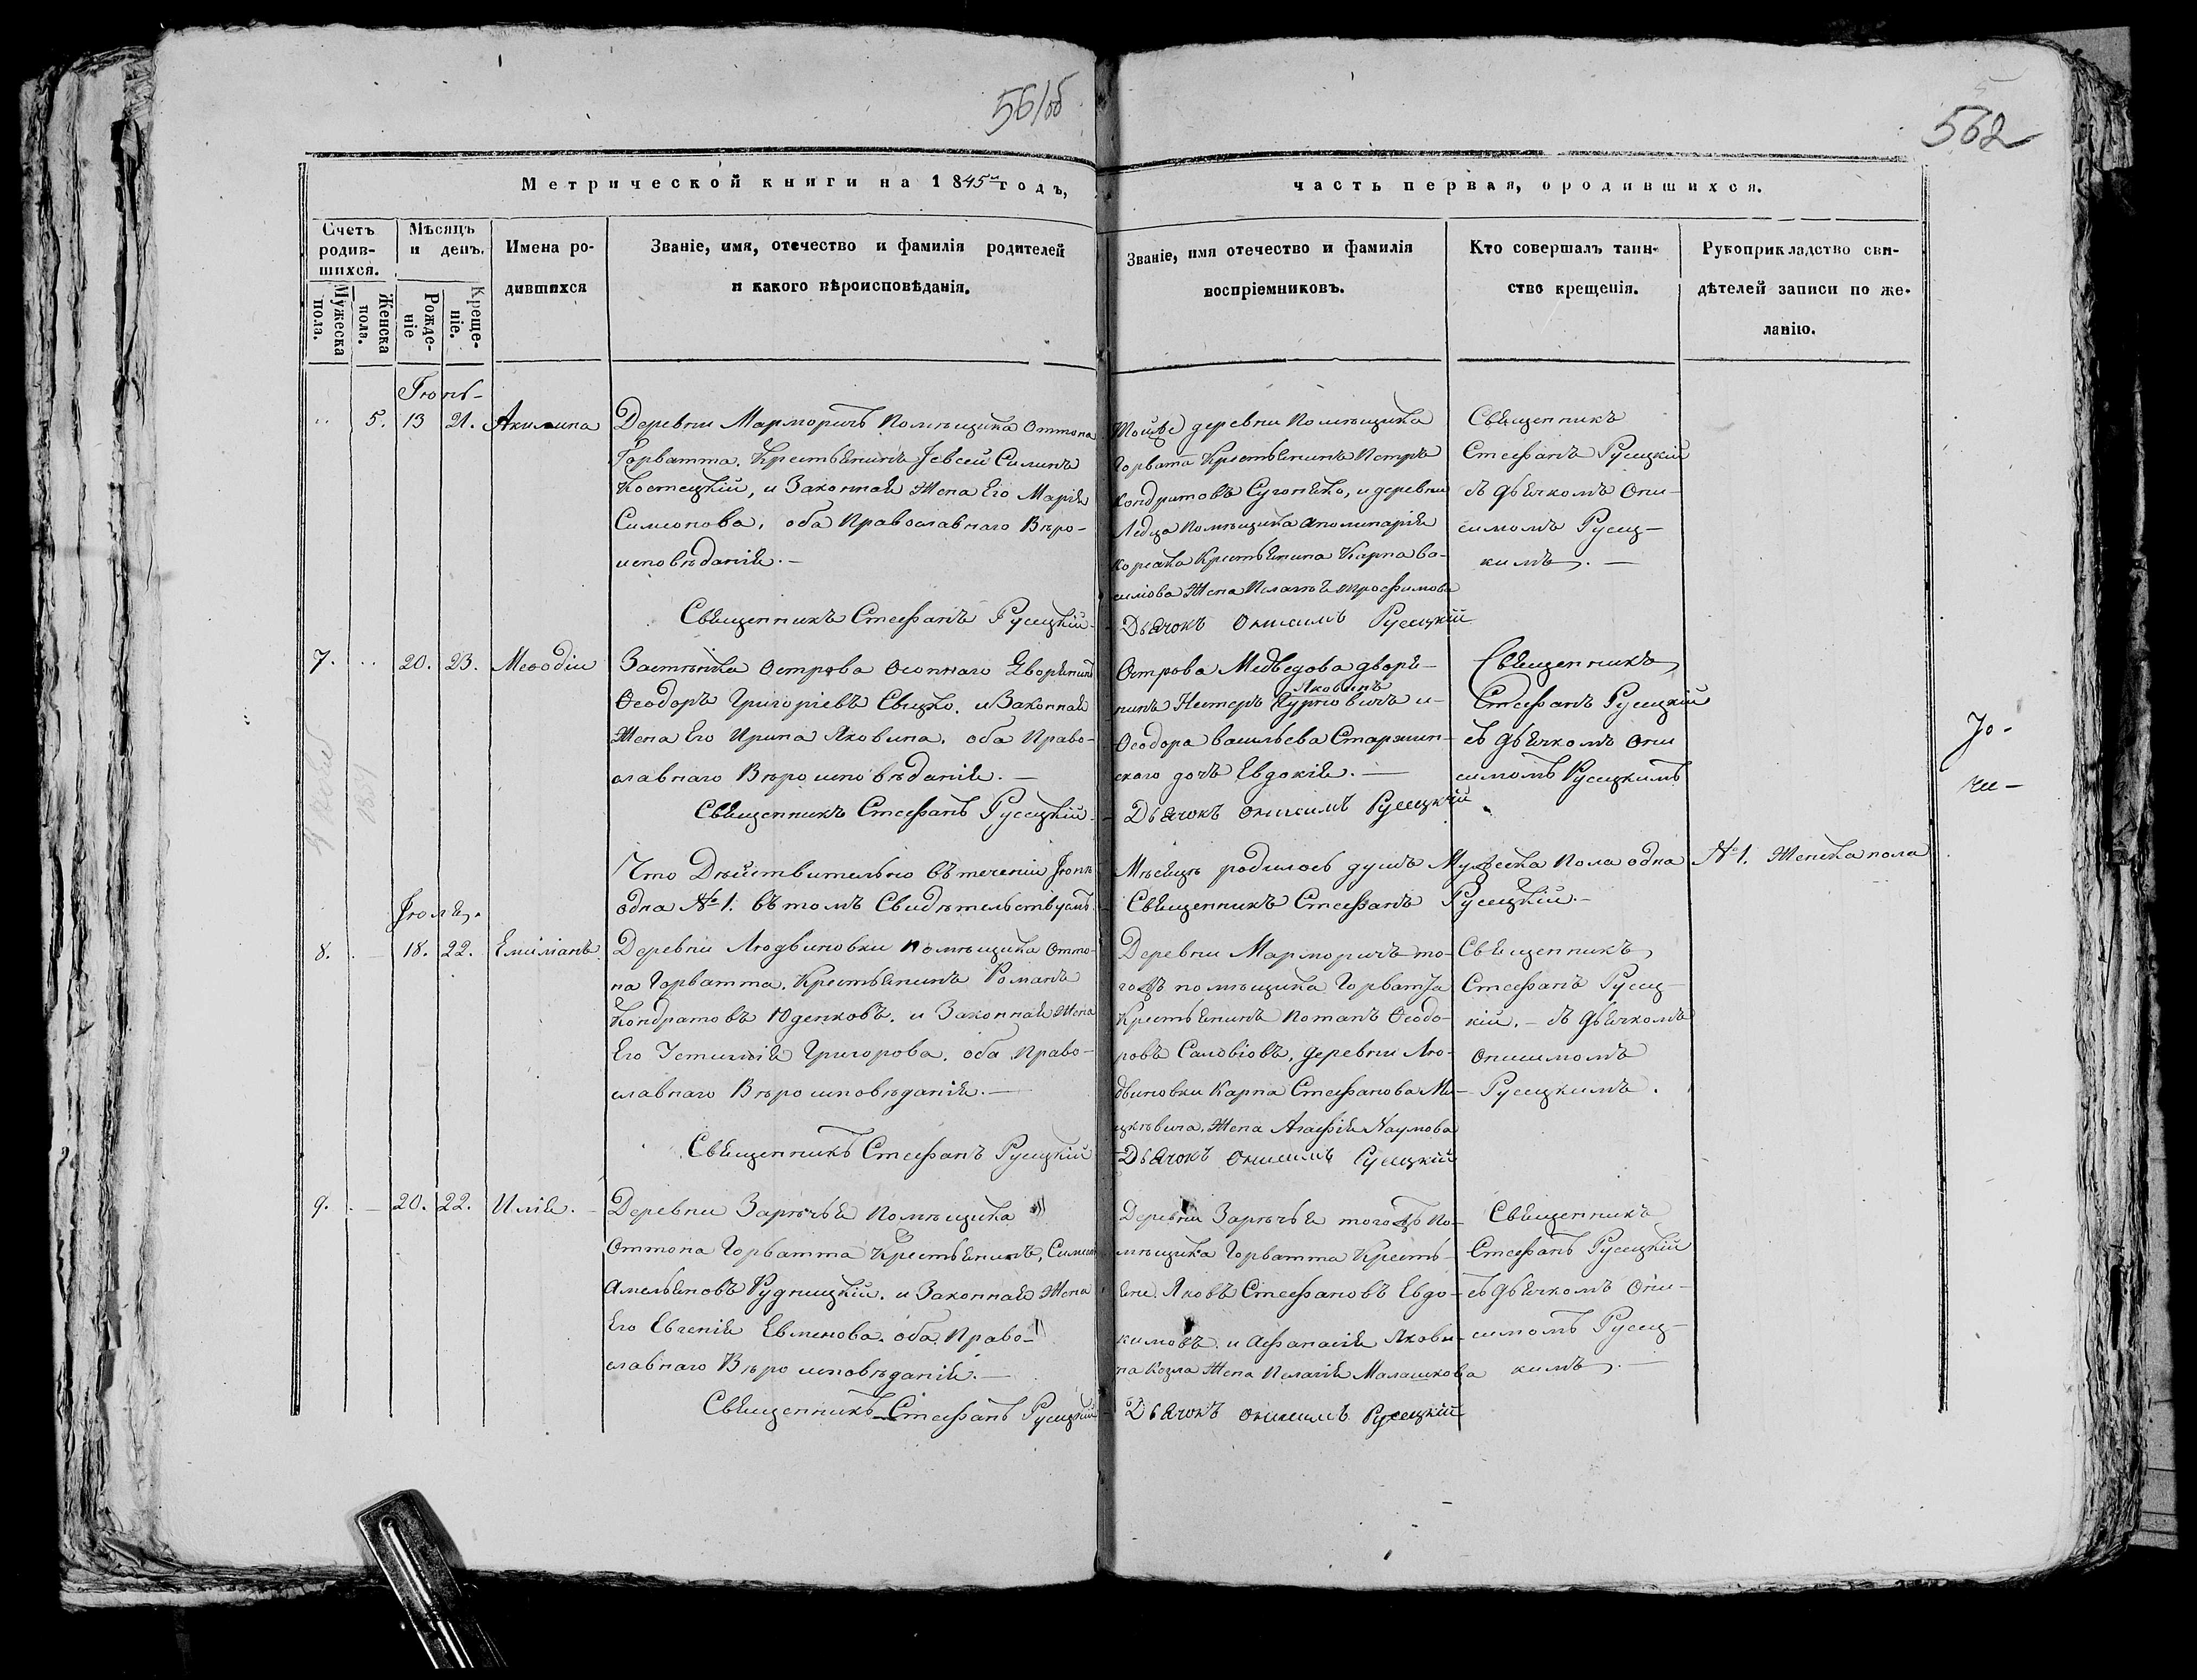 561об
562
Метрической книги на 1845й годъ,
часть первая, ородившихся.
Счетъ родив-
шихся.
Мужеска пола.
Женска пола.
Мѣсяцъ и день.
Рожде-
ніе
Креще-
ніе.
Имена ро-
дившихся
Званіе, имя, отечество и фамилія родителей
и какого вѣроисповѣданія.
Званіе, имя отечество и фамилія
воспріемниковъ.
Кто совершалъ таин-
ство крещенія.
Рукоприкладство сви-
дѣтелей записи по же-
ланію.
Іюнь
5. 13 21. Акилина
Деревни Марморичъ Помѣщика Оттона
Горватта. Крестьянинъ Іевсей Силинъ
Костецкій, и Законная Жена Его Марія
Симеонова, оба Православнаго Вѣро-
исповѣданія. —
Священникъ Стефанъ Русецкій.
Тойже деревни Помѣщика
Горвата Крестьянинъ Петръ
Кондратовъ, и деревни
Помѣщика Аполинарія
Крестьянина Карпа Ва-
силова Жена
Дьячокъ Онисимъ Русецкій
Священникъ
Стефанъ Русецкій
съ дьячкомъ Они-
симомъ Русец-
кимъ. —
7. 20. 23. Меѳодій
Застѣнка Острова Осопнаго Дворянинъ
Ѳеодоръ Григоріевъ Свицко. и Законная
Жена Его Ирина Яковина. оба Право-
славнаго Вѣроисповѣданія. —
Священникъ Стефанъ Русецкій.
Острова Медвѣдова дворя-
Яковинъ
нинъ Нестеръ и-
Ѳеодора Васильева Стержин-
скаго дочь Евдокія. —
Дьячокъ Онисимъ Русецкій
Священникъ
Стефанъ Русецкій
съ дьячкомъ Они
симомъ Русецкимъ
Что Дѣйствительно въ теченіи Іюнѣ Мѣсяцѣ родилось душъ Мужеска Пола одна №1. Женска пола
одна №1. Въ томъ Свидѣтельствуемъ. Священникъ Стефанъ Русецкій. —
Іюля.
8. 18. 22. Емиліанъ.
Деревни Людвиновки Помѣщика Отто-
на Горватта. Крестьянинъ Романъ
Кондратовъ Юденковъ. и Законная Жена
Его Устинія Григорова. оба Право-
славнаго Вѣроисповѣданія. —
Священникъ Стефанъ Русецкій
Деревни Марморичъ то-
гожъ помѣщика Горватта
Крестьянинъ Потапъ Ѳеодо-
ровъ Саловіовъ, деревни Лю-
двиновки Карпа Стефанова Ми-
цкѣвича. Жена Агафія Наумова
Дьячокъ Онисимъ Русецкій
Священникъ
Стефанъ Русец-
кій. — съ дьячкомъ
Онисимомъ
Русецкимъ.
9. 20. 22. Илія.
Деревни Зарѣчья Помѣщика
Оттона Горватта Крестьянинъ, Симеонъ
Амельяновъ Рудницкій. и Законная Жена
Его Евгенія Евменова. оба Право-
славнаго Вѣроисповѣданія. —
Священникъ Стефанъ Русецкій
Деревни Зарѣчья тогожъ По-
мѣщика Горватта Кресть-
яне. Яковъ Стефановъ Евдо-
кимовъ. и Афанасія Якови-
на Козла Жена Пелагія Малашкова
Дьячокъ Онисимъ Русецкій
Священникъ
Стефанъ Русецкій
съ дьячкомъ Они-
симомъ Русец-
кимъ. —